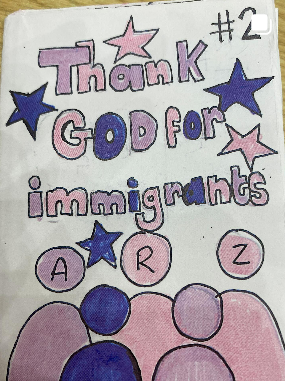 #2
Thank
GOD for
immigrants
A R Z